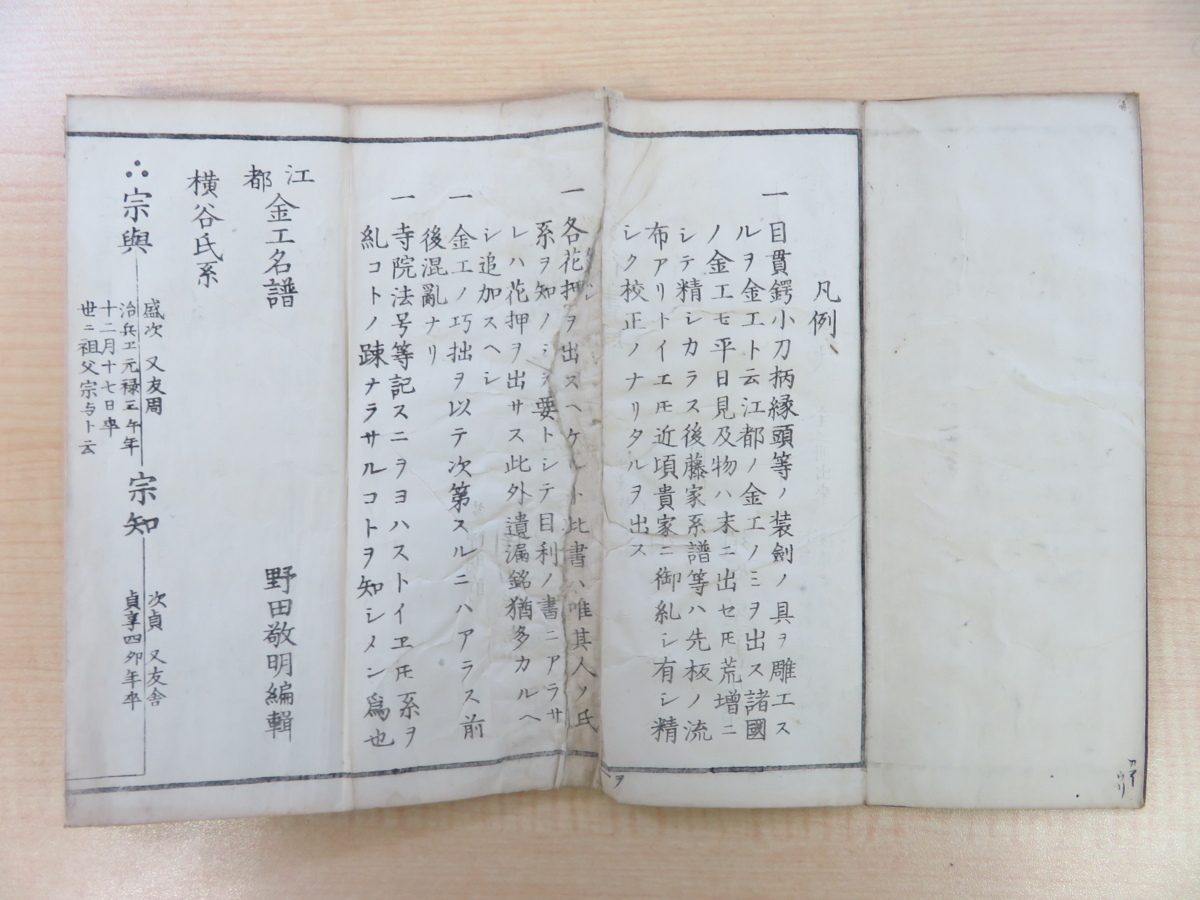 凡例
一 目貫鍔小刀柄縁頭等ノ装劍ノ具ヲ雕工ス
ルヲ金工ト云江都ノ金工ノミヲ出ス諸國
ノ金工𪜈平日見及物ハ末ニ出セ𪜈荒增ニ
シテ精シカラス後藤家系譜等ハ先板ノ流
布アリトイエ𪜈近頃貴家ニ御糺シ有シ精
シク校正ノナリタルヲ出ス
一 各花押ヲ出スヘケレト此書ハ唯其人ノ氏
系ヲ知ノミヲ要トシテ目利ノ書ニアラサ
レハ花押ヲ出サス此外遺漏銘猶多カルヘ
シ追加スヘシ
一 金工ノ巧拙ヲ以テ次第スルニハアラス前
後混亂ナリ
一 寺院法号等記スニヲヨハストイヱ𪜈系ヲ
糺コトノ踈ナラサルコトヲ知シメン爲也
江都金工名譜
野田敬明編輯
横谷氏系
∴宗與
盛次 又友周
治兵エ元禄三午年
十二月十七日卒
世ニ祖父宗与ト云
宗知
次貞 又友舎
貞享四卯年卒
ヲ